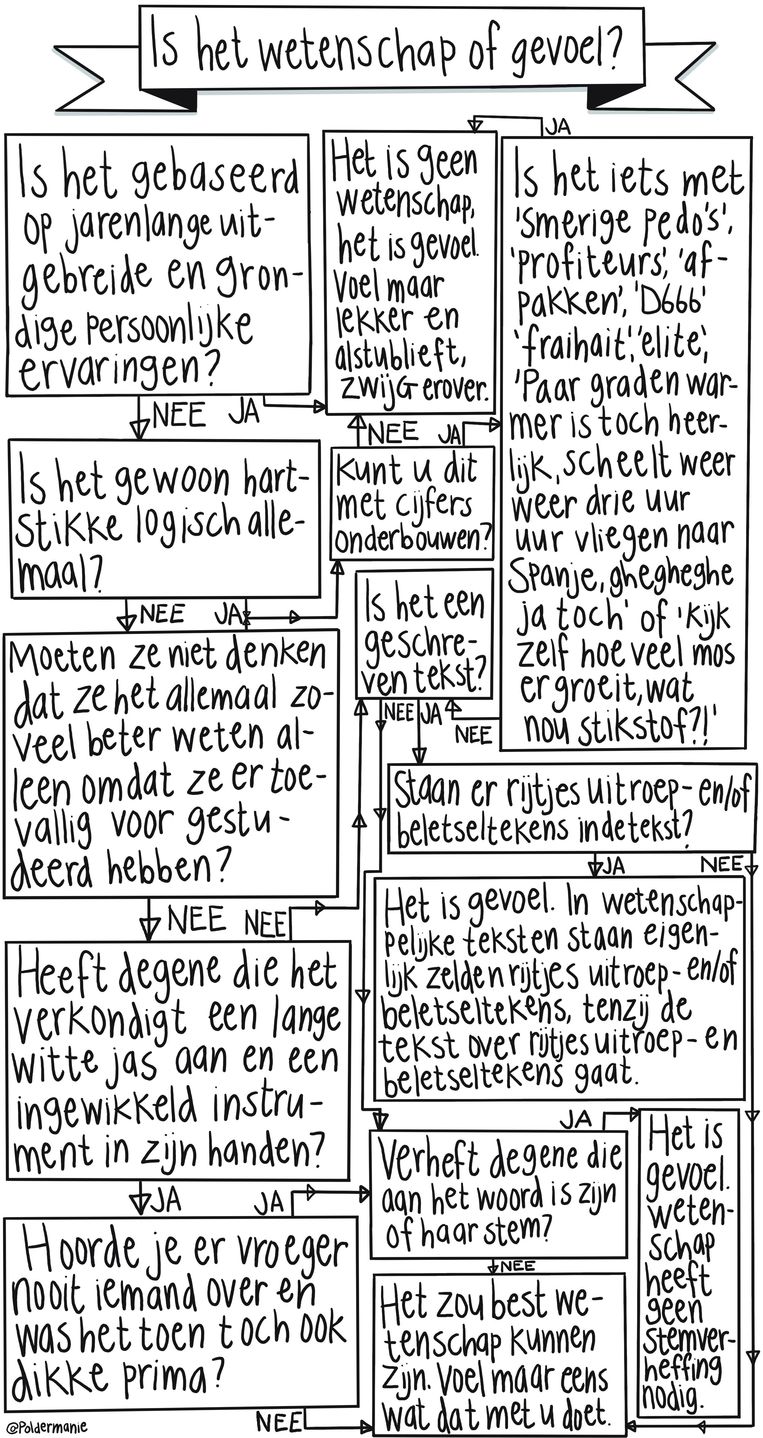 Is het wetenschap of gevoel?
Is het gebaseerd
op jarenlange uit-
gebreide en gron-
dige persoonlijke
ervaringen?
NEE JA
Het is geen
wetenschap,
het is gevoel.
Voel maar
lekker en
alstublieft,
ZWIJG erover.
JA
Is het iets met
'smerige pedo's',
'profiteurs', 'af-
pakken', 'D666'
'fraihait', 'elite',
'Paar graden war-
mer is toch heer-
lijk, scheelt weer
weer drie uur
uur vliegen naar
Spanje, ghegheghe
ja toch' of 'Kijk
zelf hoe veel mos
er groeit, wat
nou stikstof?!'
NEE
Is het gewoon hart-
stikke logisch alle-
maal?
NEE JA
NEE JA
Kunt u dit
met cijfers
onderbouwen?
Is het een
geschre-
ven tekst?
NEE JA
Moeten ze niet denken
dat ze het allemaal zo-
veel beter weten al-
leen omdat ze er toe-
vallig voor gestu-
deerd hebben?
NEE NEE
Staan er rijtjes uitroep- en/of
beletseltekens in de tekst?
JA NEE
Het is gevoel. In wetenschap-
pelijke teksten staan eigen-
lijk zelden rijtjes uitroep- en/of
beletseltekens, tenzij de
tekst over rijtjes uitroep- en
beletseltekens gaat.
Heeft degene die het
verkondigt een lange
witte jas aan en een
ingewikkeld instru-
ment in zijn handen?
JA JA
Verheft degene die
aan het woord is zijn
of haar stem?
JA
NEE
Het is
gevoel.
weten-
schap
heeft
geen
stemver-
heffing
nodig.
Hoorde je er vroeger
nooit iemand over en
was het toen toch ook
dikke prima?
NEE
Het zou best we-
tenschap kunnen
zijn. Voel maar eens
wat dat met u doet.
@Poldermanie